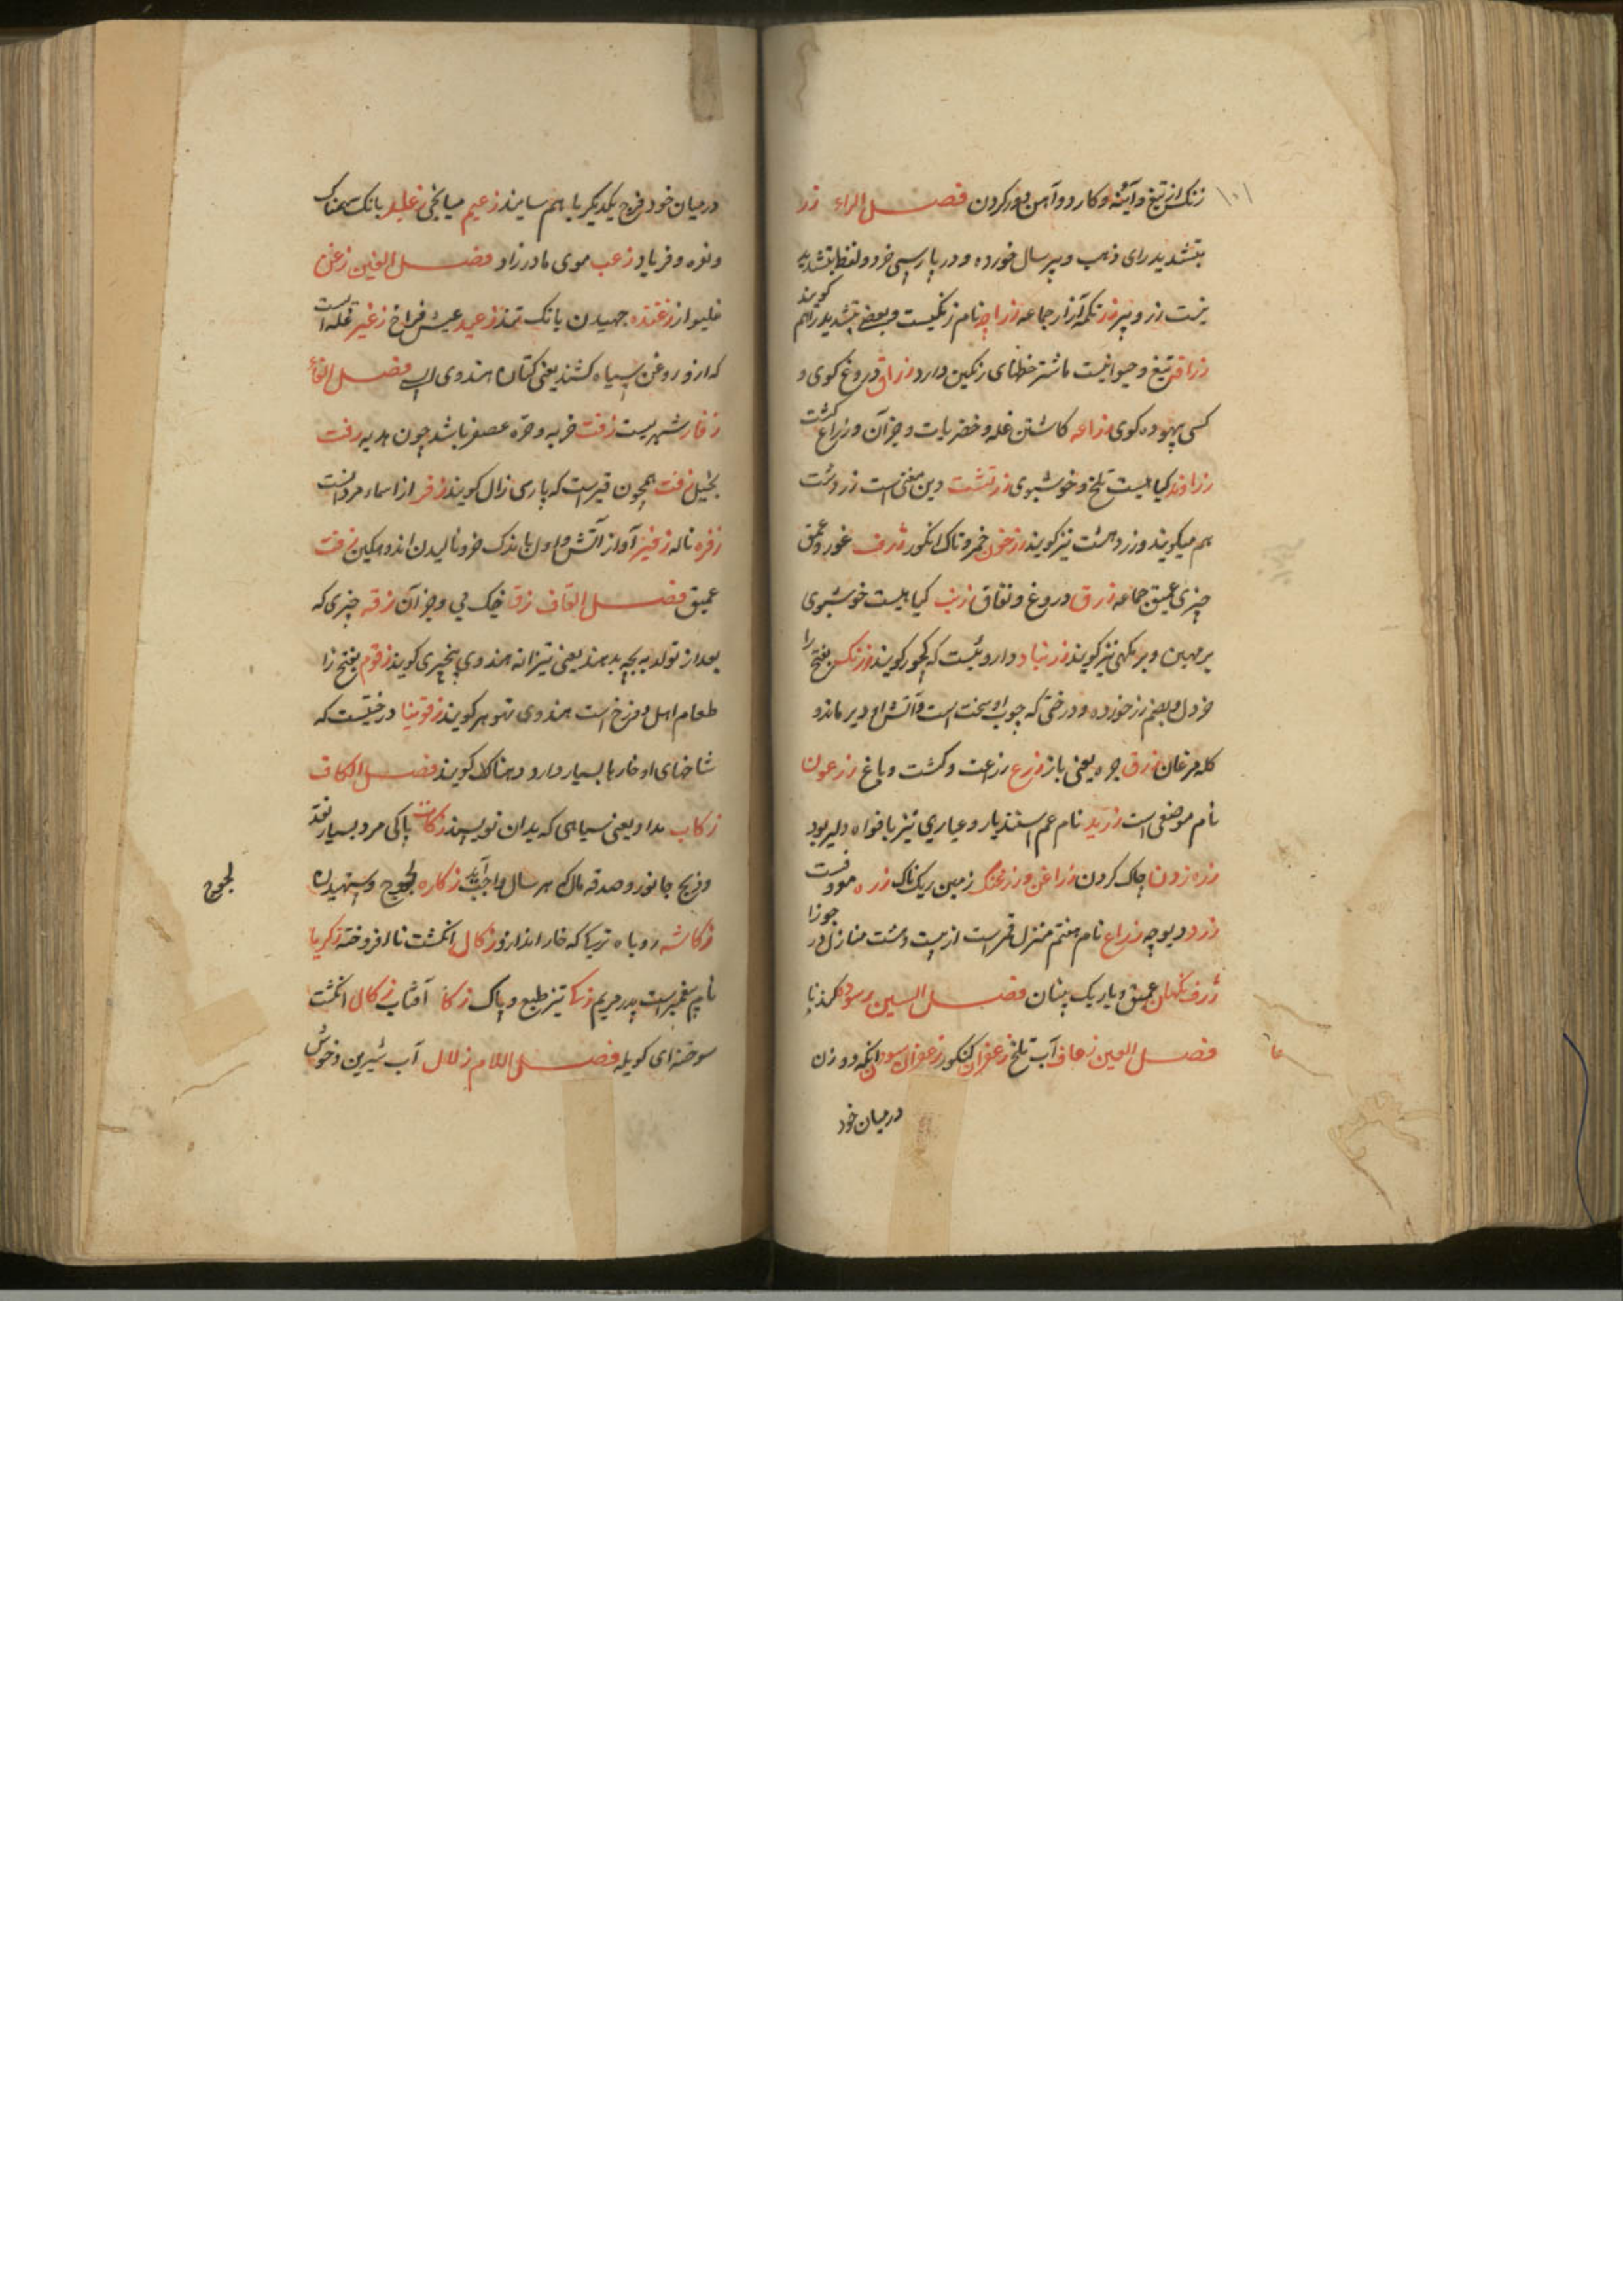 زنک از تیغ و آینه و کارد و آهن دور کردن فصل الراء زر
بتشدید رای ذهب و پیر سال خورده و در پارسی خرد و لفظ بتشدید
نیست زر و پیر زر تکمه آزار جامه زراچه نام زنگیست و بعضی بتشدید را هم گویند
زرافه تیغ و حیوانیست مانند شتر خطهای رنگین دارد زراق دروغ گوی و
کسی بیهوده گوی زراعه کاشتن غله و خضریات و جز آن و زراع کشت
زراوند گیاهیست تلخ و خوشبوی زرتشت دین مغنی است زردشت
هم میگویند و زردهشت نیز گویند زرخون خمر و تاک انگور ژرف غور و عمق
چیزی عمیق جامه زرق دروغ و نفاق زرنب گیاهیست خوشبوی
برهمین و برنکهی نیز گویند زرنباد داروئیست که کچور گویند زرنگس بفتح را
خردل و بضم زر خورده و درختی که چوب او سخت است و آتش او دیر ماند و
کله مرغان زرق جره یعنی باز زرع زراعت و کشت و باغ زرعون
نام موضعی است زریر نام عم اسفندیار و عیاری نیز بافواه دلیر بود
زره زدن چاک کردن زراغن و زرغنک زمین ریگناک زره موو فست
زرد دیوچه ذراع نام هفتم منزل قمرست از بیست و هشت منازل در جوزا
ژرف نگهان عمیق و باریک بینان فصل السین
فصل العین زعاق آب تلخ زعفران کنکور زعفران سودن آنکه دو زن
درمیان خود
درمیان خود فرج یکدیگر باهم سایند زعیم میانجی زعلید بانک سهمناک
و نوه و فریاد زعب موی مادرزاد فصل الغین زغن
غلیواز زغنده جهیدن یا بانک تند زغید عیش فراخ زغیر غله است
که ازو روغن سیاه کشند یعنی کتان هندوی السی فصل الفاء
زفار شهریست زفت خربه و حره عصفر باشد چون هدیه زفت
بخیل زفت همچون قیرست که پارسی زال گویند زفر از اسماء مردانست
زفره ناله زفیر آواز آتش و اول بانک خر و نالیدن اندوهگین زفت
عمیق فصل القاف زق خیک می و جز آن زقه چیزی که
بعد از تولد به بچه بدهند یعنی تیزانه هندوی پنجیری گویند زقوم بفتح زا
طعام اهل دوزخ است هندوی تهوهر گویند زقونیا درختیست که
شاخهای او خارها بسیار دارد و دهناک گویند فصل الکاف
زکاب مداد یعنی سیاهی که بدان نویسند زکات پاکی مرد بسیار نقد
و ذبح جانور و صدقه مال که هر سال واجب آید زکاره لجوج و ستهیدن
لجوج
زکاشه روباه ترکی که خار اندازد زکال انگشت ناافروخته زکریا
نام پیغمبرست پدر مریم زکی تیز طبع و پاک زکا آفتاب زکال انگشت
سوخته ای کویله فصل اللام زلال آب شیرین و خوش